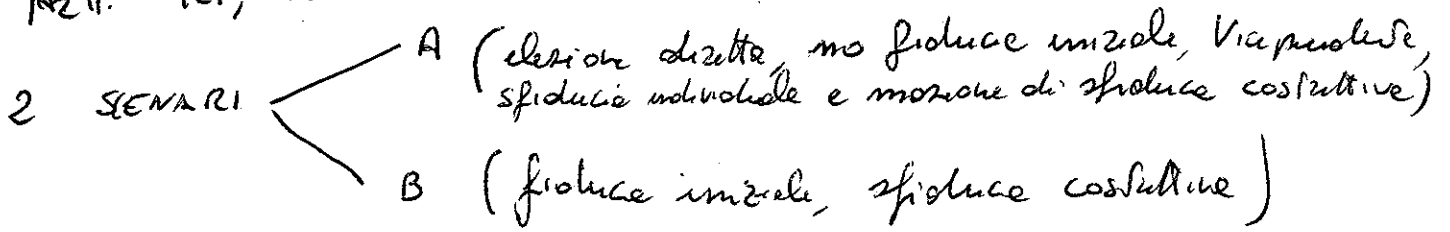 A (elezione diretta, no fiducia iniziale, Vicepresidente,
sfiducia individuale e mozione di sfiducia costruttiva)
2 SCENARI
B (fiducia iniziale, sfiducia costruttiva)